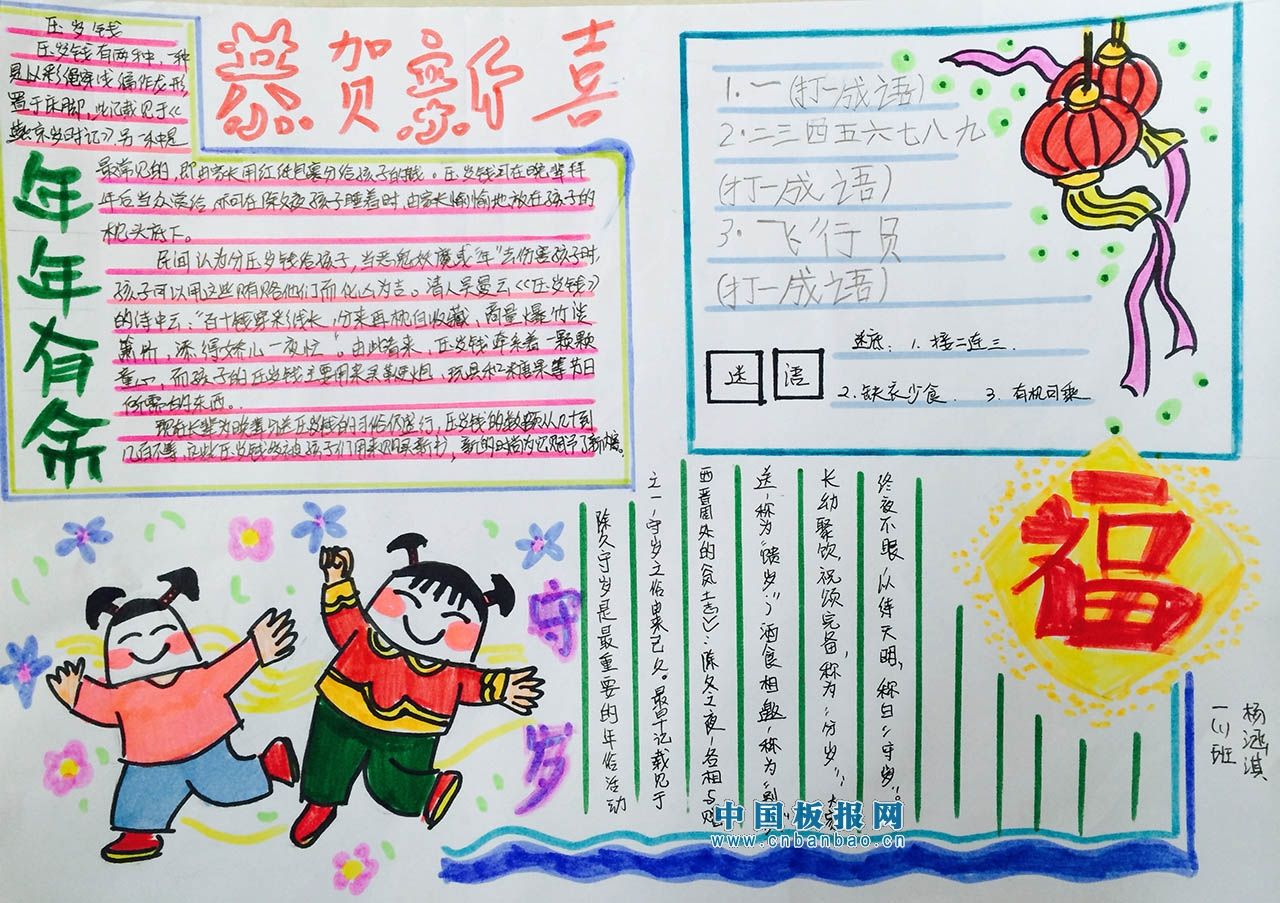 恭贺新喜
压岁钱
压岁钱有两种,一种
是以彩绳穿线编作龙形
置于床脚,此记载见于《
燕京岁时记》;另一种是
最常见的,即由家长用红纸包裹分给孩子的钱。压岁钱可在晚辈拜
年后当众赏给,亦可在除夕夜孩子睡着时,由家长愉愉地放在孩子的
枕头底下。
民间认为分压岁钱给孩子,当恶鬼妖魔或"年"去伤害孩子时,
孩子可以用这些钱贿赂他们而化凶为吉。清人吴曼云《压岁钱》
的诗中云:"百十钱穿彩线长,分来再枕自收藏,商量爆竹谈
箫价,添得娇儿一夜忙"。由此看来,压岁钱牵系着一颗颗
童心,而孩子的压岁钱主要用来买鞭炮、玩具和糖果等节日
所需的东西。
现在长辈为晚辈分送压岁钱的习俗仍盛行,压岁钱的数额从几十到
几百不等,这些压岁钱多被孩子们用来购买新书,新的时尚为它赋予了新内容。
年年有余
1.一(打一成语)
2.二三四五六七八九
(打一成语)
3.飞行员
(打一成语)
谜语
谜底: 1.接二连三.
2.缺衣少食. 3.有机可乘
福
守岁
除夕守岁是最重要的年俗活动
之一,守岁之俗由来已久。最早记载见于
西晋周处的《
除夕之夜,各相与
送,称为"馈岁";酒食相邀,称为"别
长幼聚饮,祝颂完备,称为"分岁";大家
终夜不眠,以待天明,称曰"守岁"。
杨涵淇
一(1)班
中国板报网
www.cnbanbao.cn